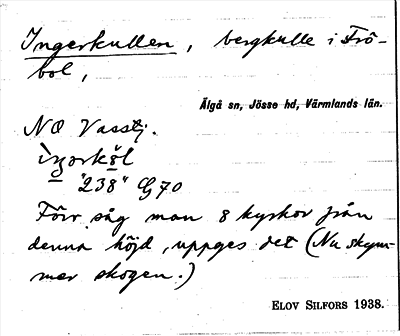 Ingerkullen, bergkulle i Frö-
bol,
Älgå sn, Jösse hd, Värmlands län.
NO Vasstj.
ìŋorköl
"238" G70
Förr såg man 8 kyrkor från
denna höjd, uppges det (Nu skym-
mer skogen.)
ELOV SILFORS 1938.